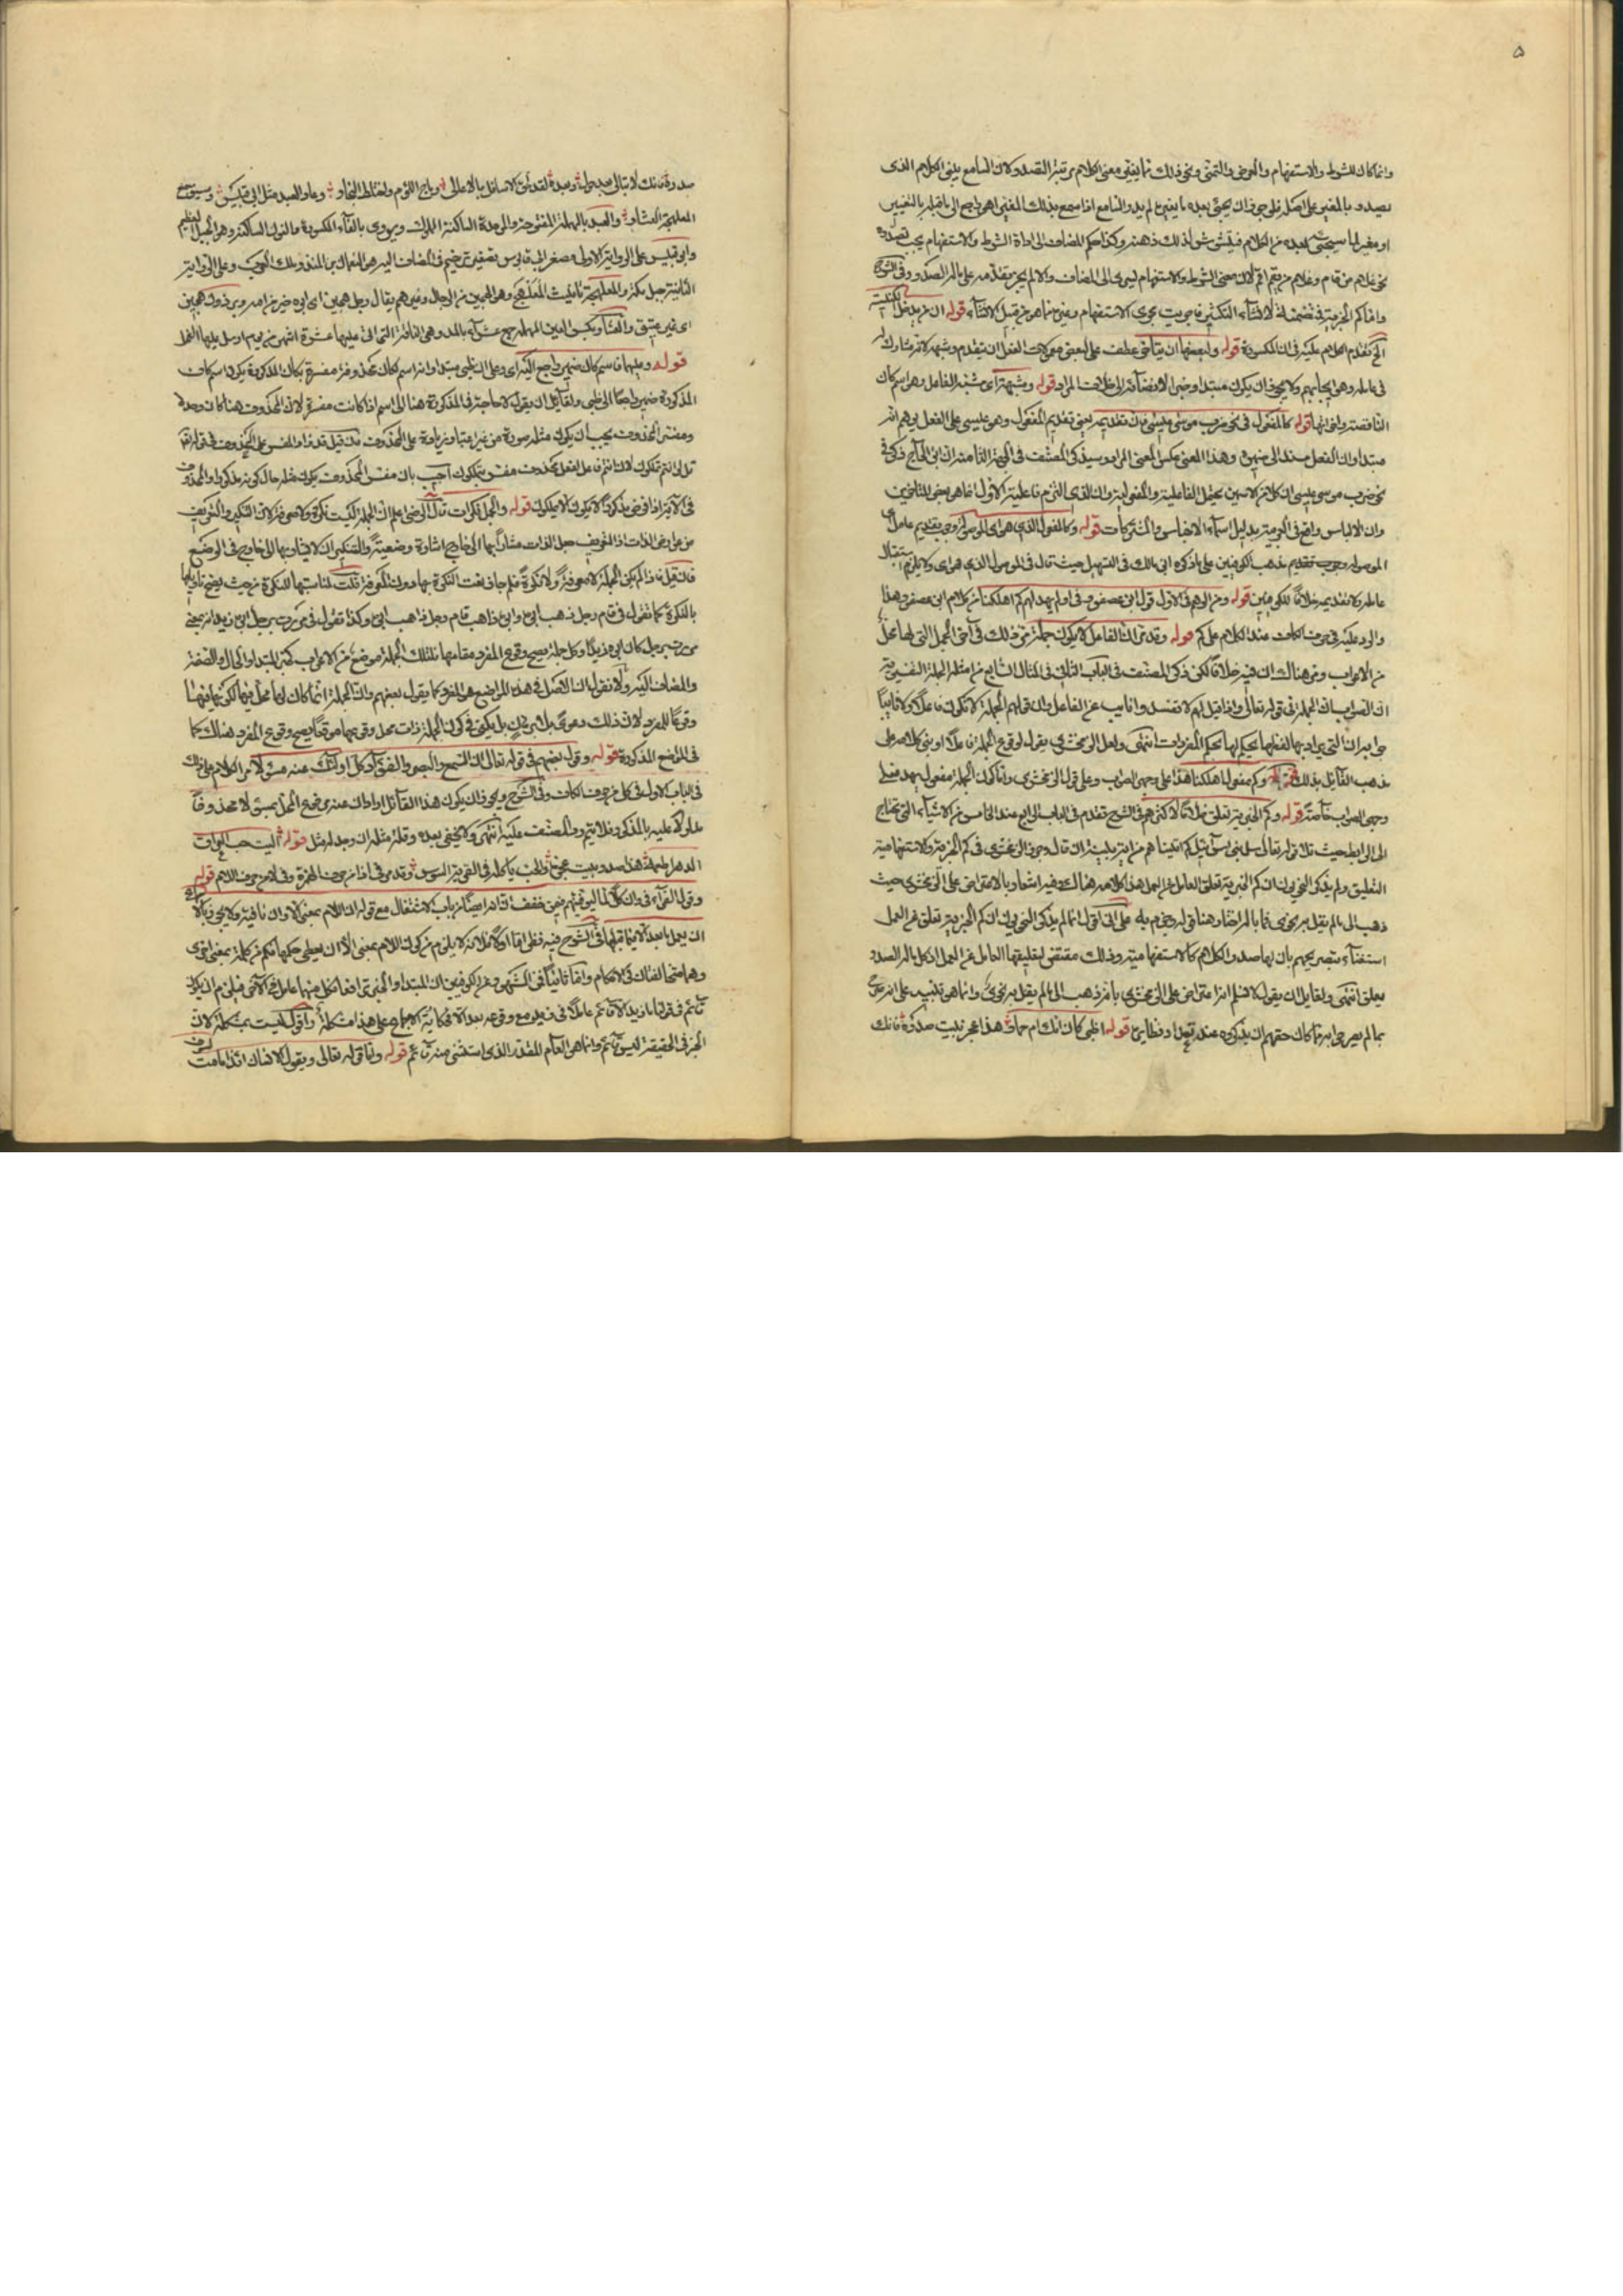 ۵
وانما كان للشرط والاستفهام والعرض والتمني ونحو ذلك مما يغير معنى الكلام مرتبة التصدر لان السامع يبني الكلام الذي
يصدر بالمغير على اصله فلو جوز ان يجيء بعده ما يغيره لم يدر السامع اذا سمع بذلك المغير اهو راجع الى ما قبله بالتغيير
او مغير لما سيجيء بعده من الكلام فيتشوش لذلك ذهنه وكذا حكم المضاف الى اداة الشرط والاستفهام يجب تصدره
نحو غلام من قام وغلام من يقم اقم لان معنى الشرط والاستفهام يسري الى المضاف والا لم يجز تقدمه على ماله الصدر وفي الشرح
واما كم الخبرية فتضمنها لانشاء التكثير فاجريت مجرى الاستفهام وغيره مما هو من قبيل الانشاء قوله ان من يدخل الكنيسة
الخ تقدم الكلام عليه في ان المكسورة قوله ولبعضها ان يتأخر عطف على لبعض معمولات الفعل ان يتقدم
في عامله وهو يجابهم ولا يجوز ان يكون مبتدا وخبرا لافضائه الى خلاف المراد قوله وشبهه اي شبه الفاعل وهو اسم كان
الناقصة واخواتها قوله كالمفعول في نحو ضرب موسى عيسى فان تقديمه يعني تقديم المفعول وهو عيسى على الفعل يوهم انه
مبتدا وان الفعل مسند الى ضميره وهذا المعنى عكس المعنى المراد وسيذكر المصنف في الجهة الثامنة ان ابن الحاج ذكر في
نحو ضرب موسى عيسى ان كلا من الاسمين يحتمل الفاعلية والمفعولية وان الذي التزم فاعلية الاول انما هو بعض المتاخرين
وان الالباس واقع في العربية بدليل اسماء الاجناس والمشتركات قوله وكالمفعول الذي هو اي الموصولة وجوب تقديم عامل اي
الموصولة وجوب تقديم مذهب الكوفيين على ما ذكره ابن مالك في التسهيل حيث قال في الموصول الذي هو اي ولا يلزم استقبال
عامله ولا تقديمه خلافا للكوفيين قوله ومن الوهم في الاول قول ابن عصفور في اولم يهد لهم كم اهلكنا من كلام ابن عصفور وهذا
والرد عليه في حرف الكاف عند الكلام على كم قوله وقد مر ان الفاعل لا يكون جملة مر ذلك في آخر الجمل التي لها محل
من الاعراب ومر هناك ان فيه خلافا لكن ذكر المصنف في الباب الثاني في المثال الثاني من امثلة الجملة التفسيرية
ان الصواب ان الجملة في قوله تعالى واذا قيل لهم لا تفسدوا نايب عن الفاعل وان قولهم الجملة لا تكون فاعلا ولا نائبا
جوابه ان التي يراد بها لفظها يحكم لها بحكم المفردات انتهى ولعل الزمخشري يقول لوقوع الجملة فاعلا او بنى كلامه على
مذهب القائل بذلك قوله وكم مفعول اهلكنا هذا على وجهي الصواب وعلى قول الزمخشري واما كون الجملة مفعول يهد فعلى
وجهي الصواب خاصة قوله وكم الخبرية تعلق خلافا لاكثرهم في الشرح تقدم في الباب الرابع عند الخامس من الاشياء التي تحتاج
الى الرابط حيث تلا قوله تعالى سل بني اسرائيل كم آتيناهم من آية بينة ان قال وجوز الزمخشري في كم الخبرية والاستفهامية
التعليق ولم يذكر النحويون ان كم الخبرية تعلق العامل عن العمل هذا كلامه هناك وفيه اشعار بالاعتراض على الزمخشري حيث
ذهب الى ما لم يقل به نحوي
استغناء بتصريحهم بان لها صدر الكلام كالاستفهامية وذلك مقتضى لتعليقها العامل عن العمل اذ كل ما له الصدر
يعلق انتهى ولقايل ان يقول لا نسلم انه اعتراض على الزمخشري بانه ذهب الى ما لم يقل به نحوي وانما هو تنبيه على انه
بما لم يصرحوا به وما كان حقهم ان يذكروه عند قوله اظبي كان امك ام حمار هذا عجز بيت صدره فانك
صدره فانك لا تبالي بعد حول وبعده لقد لحق الاسافل بالاعالي وماج اللؤم واختلط النجار وعاد العبد مثل ابي قبيس وسيق مع
المعلهجة العشار والعبد بالمهملة المفتوحة والموحدة الساكنة المملوك ويروى بالفاء المكسورة والنون الساكنة وهو الجبل العظيم
وابو قبيس على الرواية الاولى مصغر ابي قابوس تصغير ترخيم في المضاف اليه هو النعمان بن المنذر ملك العرب وعلى الرواية
الثانية جبل بمكة والمعلهجة تانيث المعلهج وهو الهجين من الرجال وغيرهم يقال رجل هجين اي ابوه خير من امه وبرذون هجين
اي غير عتيق والعشار بكسر العين المهملة جمع عشراء بالمد وهي الناقة التي اتى عليها عشرة اشهر من يوم ارسل عليها الفحل
قوله وعليهما فاسم كان ضمير راجع اليه اي وعلى ان ظبي مبتدا وانه اسم كان محذوفة مفسرة بكان المذكورة يكون اسم كان
المذكورة ضميرا راجعا الى ظبي ولقائل ان يقول لا حاجة في المذكورة هنا الى اسم اذا كانت مفسرة لان المحذوف هنا كان وحده
ومفسر المحذوف يجب ان يكون مثله سورة من غير اعتبار زيادة على المحذوف
في الآية اذا فرض مذكورا لا يكون الا يملكون قوله والجمل نكرات قال الرضي اعلم ان الجملة ليست نكرة ولا معرفة لان التنكير والتعريف
من عوارض الذات اذ التعريف جعل الذات مشارا بها الى خارج اشارة وضعية والتنكير ان لا يشار بها الى خارج في الوضع
فان قيل فاذا لم يكن الجملة لا معرفة ولا نكرة فلم جاز نعت النكرة بها دون المعرفة قلت لمناسبتها للنكرة من حيث يصح تأويلها
بالنكرة كما تقول في قام رجل ذهب ابوه قام رجل ذاهب ابوه وكذا تقول في مررت برجل ابوه زيد انه بمعنى
مررت برجل كائن ابوه زيدا وكل جملة يصح وقوع المفرد مقامها فلتلك الجملة موضع من الاعراب كخبر المبتدا والحال والصفة
والمضاف اليه ولا نقول ان الاصل في هذه المواضع هو المفرد كما يقول بعضهم وان الجملة انما كان لها محل فيها لكونها فيها
فرعا للمفرد لان ذلك دعوى بلا برهان بل يكفي في كون الجملة ذات محل وقوعها موقعا يصح وقوع المفرد هناك كما
في المواضع المذكورة قوله وقول بعضهم في قوله تعالى ان السمع والبصر والفؤاد كل اولئك عنه مسئولا مر الكلام على ذلك
في الباب الاول في كل من حرف الكاف وفي الشرح ويجوز ان يكون هذا القائل اراد ان عنه مرفوع المحل بمسئولا محذوفا
مدلولا عليه بالمذكور فلا يتم رد المصنف عليه انتهى ولا يخفى بعده وقلة مثله ان وجد له مثل قوله اليت حب العراق
الدهر اطعمه هذا صدر بيت عجزه والحب ياكله في القرية السوس وقد مر في اذا من حرف الهمزة وفي لا من حرف اللام قوله
وقول الفراء في وان كلا لما ليوفينهم فيمن خفف ان انه ايضا من باب الاشتغال مع قوله ان اللام بمعنى الا وان نافية ولا يجوز بالاجماع
ان يعمل ما بعد الا فيما قبلها في الشرح فيه نظر اما اولا فلانه لا يلزم من كون اللام بمعنى الا ان يعطى حكمها فكم من كلمة بمعنى اخرى
وهما متخالفتان في الاحكام واما ثانيا ففي الشهير عن الكوفيين ان المبتدا والخبر ترافعا فكل منهما عامل في الآخر فيلزم ان يكون
قائم في قولنا ما زيد الا قائم عاملا في زيد مع وقوعه بعد الا فحكاية الاجماع على هذا مشكلة واقول ليست بمشكلة لان
الخبر في الحقيقة ليس قائم وانما هو العام المقدر الذي استثنى منه قائم قوله واما قوله تعالى ويقول الانسان ائذا ما مت لسوف